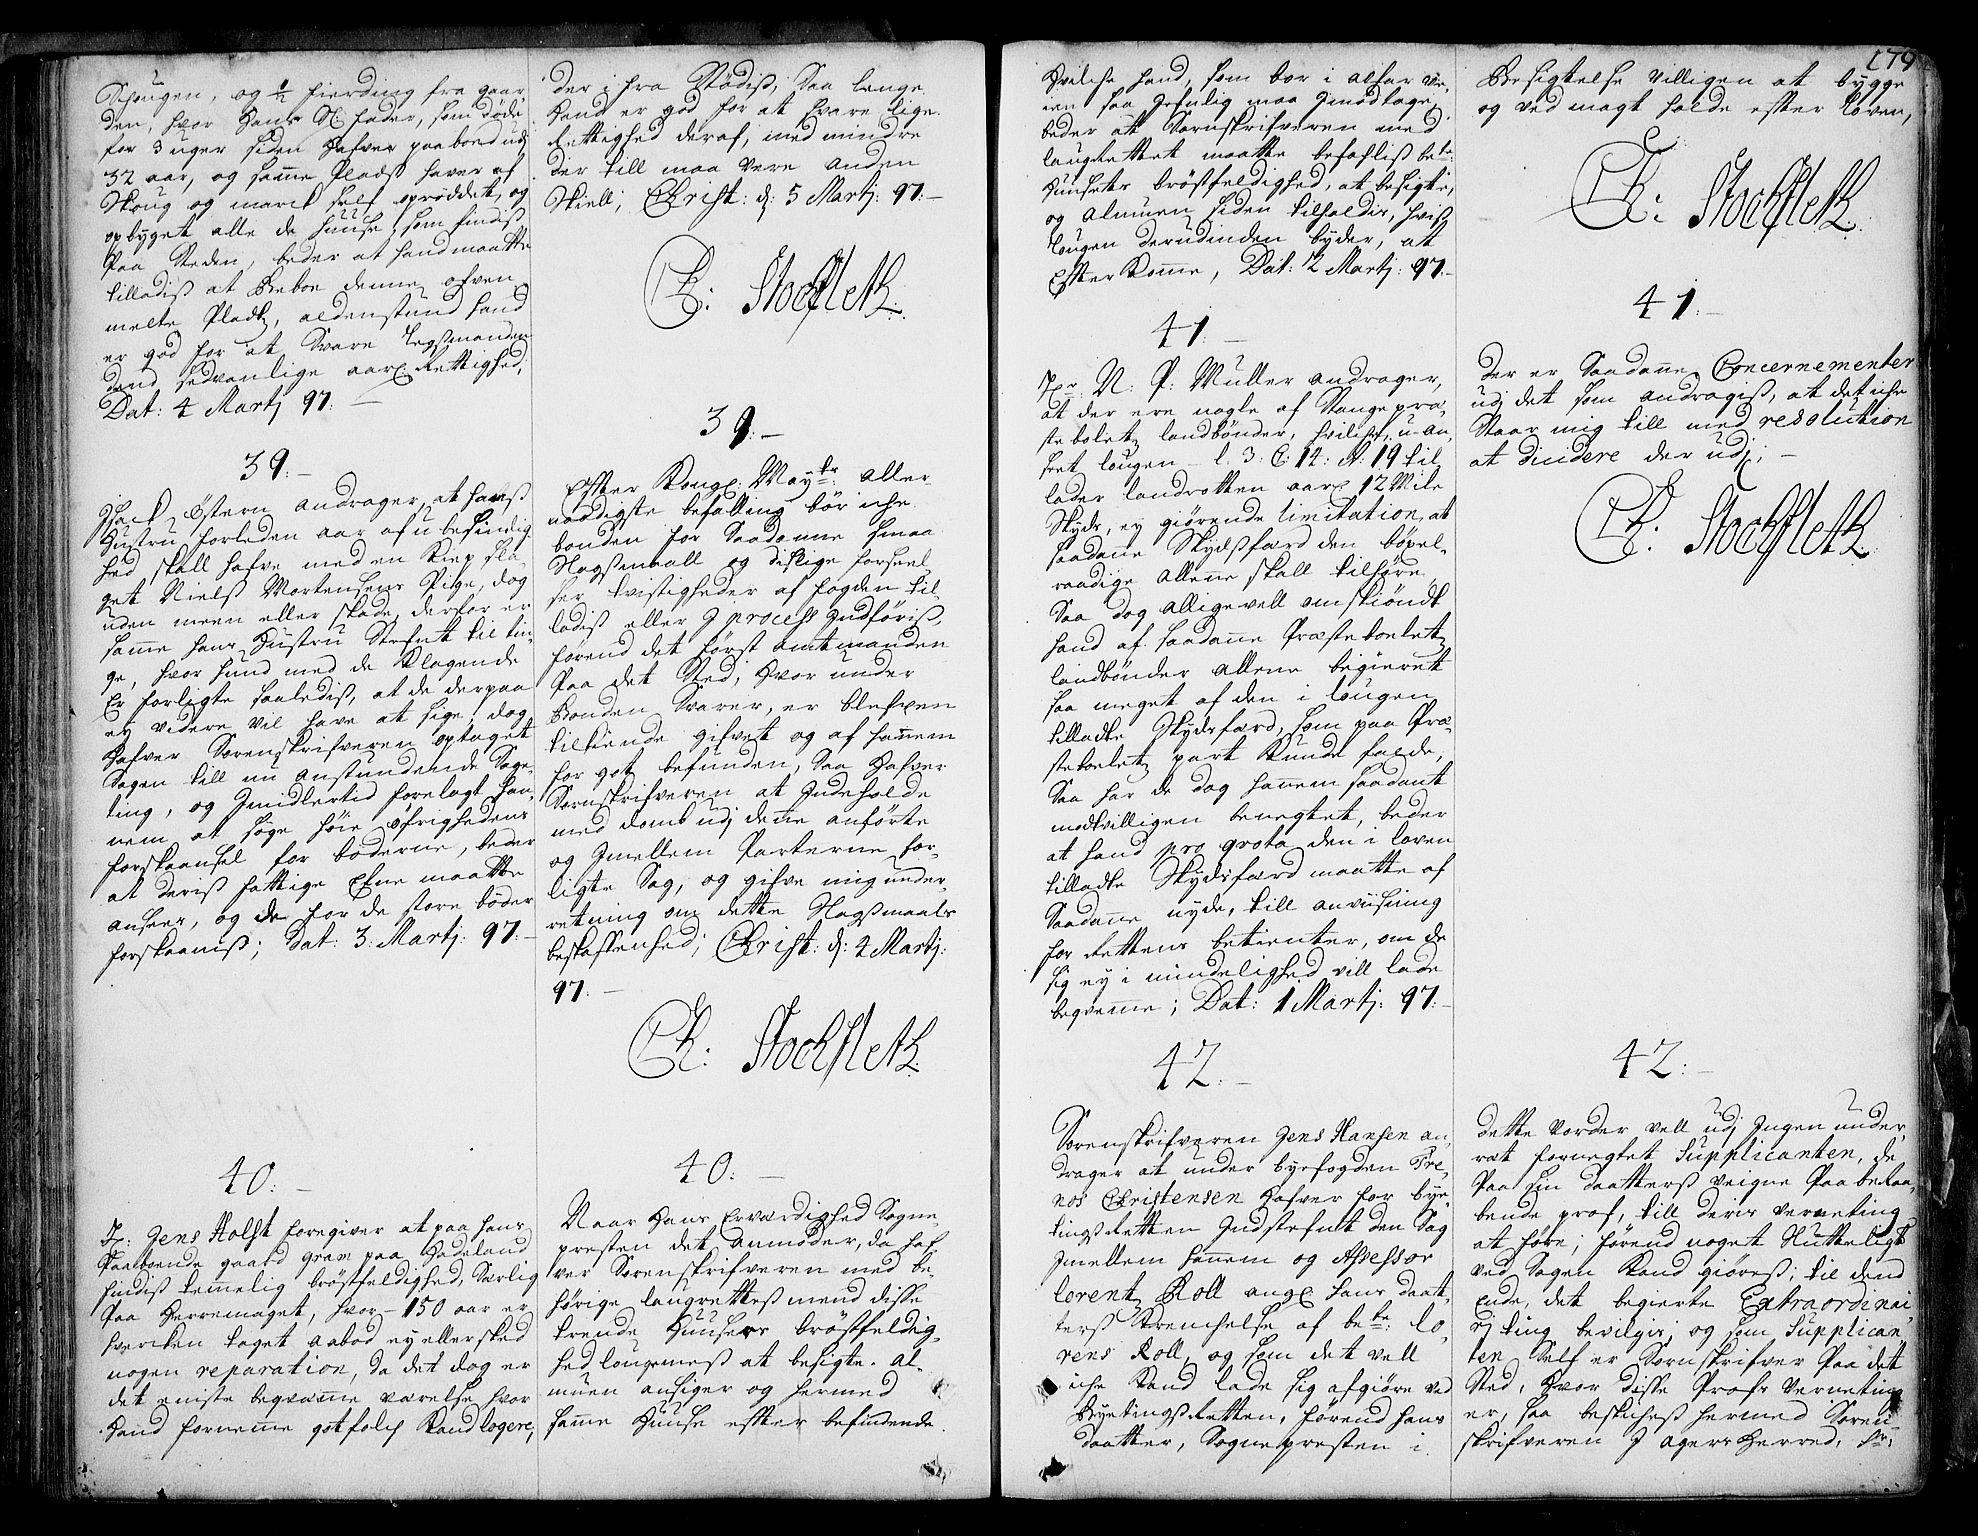 Schougen, og ½ fierding fra gaar
den, hvor hans Sl: fader, som døde
for 3 uger siden hafver paaboed udj
32 aar, og samme Plads haver af
Skoug og march self oprøddet, og
opbyget alle de huuse, som findis
paa Steden, beder at hand maatte
tilladis at beboe denne ofven
melte Pladtz, aldenstund hand
er god for at Svare
dend sedvanlige aarl: Rettighed,
Dat: 4 Martj 97:
39:
Østern andrager, at hans
Hustru forleden aar af ubesindig
hed skall hafve med en Kiep sla
get Niels Mortensens Pige, dog
uden meen eller skade, derfor er
samme hans Hustru Stefnt til tin
ge, hvor hund med de Klagende
er forligte saaledis, at de derpaa
ey videre vil have at sige, dog
hafver Sorenskrifveren optaget
Sagen till nu anstundende Sage
ting, og Imidlertid forelagt han
nem at søge høie øfrighedens
forskaansel for bøderne, beder
at deris fattige Efne maatte
ansees, og de for de store bøder
forskaanis; Dat: 3 Martj: 97:
40:
Hr: Jens Holst foregiver at paa hans
paaboende gaard gran paa Hadeland
findis temmelig brøstfeldighed, Særlig
paa Herremaget, hvor 150 aar er
hverken taget aabod ey eller sked
nogen reparation, da det dog er
det eniste beqvemme værelse hvor
hand fornemme gotfolch kand logere,
der i fra Stædis, saa lenge
hand er god for at svare lige
Rettighed deraf, med mindre
der till maa vere anden
Skiell; Christ: d: 5 Martj: 97:
Ch: Stockfleth
39:
Efter Kongl: Mayts: aller
naadigste befalling bør iche
bonden for Saadanne smaa
Slagsmaall og deslige forseel
ser tvistigheder af fogden til
ladis eller I process Indføris,
forend det først amtmanden
paa det Sted, hvor under
bonden Svarer, er blefven
tilkiende gifvet og af hannem
for got befunden, Saa hafver
Sorenskrifveren at Indeholde
med domb udj denne anførte
og Imellem Parterne for
ligte Sag, og gifve mig under
retning om dette Slagsmaals
beskaffenhed; Christ: d: 4 Martj:
97:
Ch: Stockfleth
40:
Naar hans Erværdighed Sogne
presten det anmoder, da haf
ver Sorenskrifveren med be
hørige laugrettesmend disse
Huusers brøstfeldig
hed lougmes at besigte. Al
muen ansiger og hermed
samme Huuse effter befindende
179
hvilche hand, som bor i alfar vei
ien saa maa Imodtage,
beder at Sorenskrifveren med
laugrettet maatte befahlis bete:
Huusets brøstfeldighed, at besigte,
og almuen siden tilholdes, hvis
Lougen derudinden byder, at
efter Komme, Dat: 2 Martj: 97:
41:
Hr: N: P: Muller andrager,
at der ere nogle af Stange præ
stebolets landbønder, hvilche, u-an
seet lougen l: 3: C: 14: A: 19 til
lader landrotten aarl: 12 Mile
Skyds, ey giørende limitation, at
saadane Skydsfærd den bøxel
raadige allene skall tilhøre,
Saa dog alligevell omskiøndt
hand af saadanne Præstebolets
landbønder allene begieret
saa meget af den i lougen
tilladte Skydsfærd, som paa Præ
stebolets part kunde falde,
Saa har de dog hannem saadant
modtvilligen benegtet, beder
at hand pro qvota den i loven
tilladte Skydsfærd maatte af
Saadanne nyde, till anviisning
for Rettens betienter, om de
sig ey i mindelighed vill lade
beqvemme; Dat: 1 Martj: 97:
42:
Sorenskrifveren Jens Hansen an
drager at under byefogden Tre
nos Christensen hafver for bye
tings Retten Indstefnt den Sag
Imellem hannem og Assessor
lorents Roll angl: hans daat
ters Krenchelse af bete: lo
rens Roll, og som det vell
iche kand lade sig afgiøre ved
Byetings Retten, førend hans
daatter, Sognepresten i
besigtelse villigen at bygge
og ved magt holde efter loven,
Ch: Stockfleth
41:
der er Saadanne Concernementer
udj det som andragis, at det iche
Staar mig till med resolution
at decidere der udj;
Ch: Stockfleth
42:
dette vorder vell udj Ingen under
ret fornegtet Supplicanten, de
paa Sin daatters veigne paabetaa
bende prof, till deris verneting
at føre; førend noget Slutteligt
ved Sagen kand giøres; til dend
Ende, det begierte Extraordinai
rj ting bevilgis, og som Supplican
ten Self er Sorenskrifver paa det
Sted, hvor disse Profs verneting
er, saa beskichess hermed Soren
skrifveren I Agers Herred, Sr: